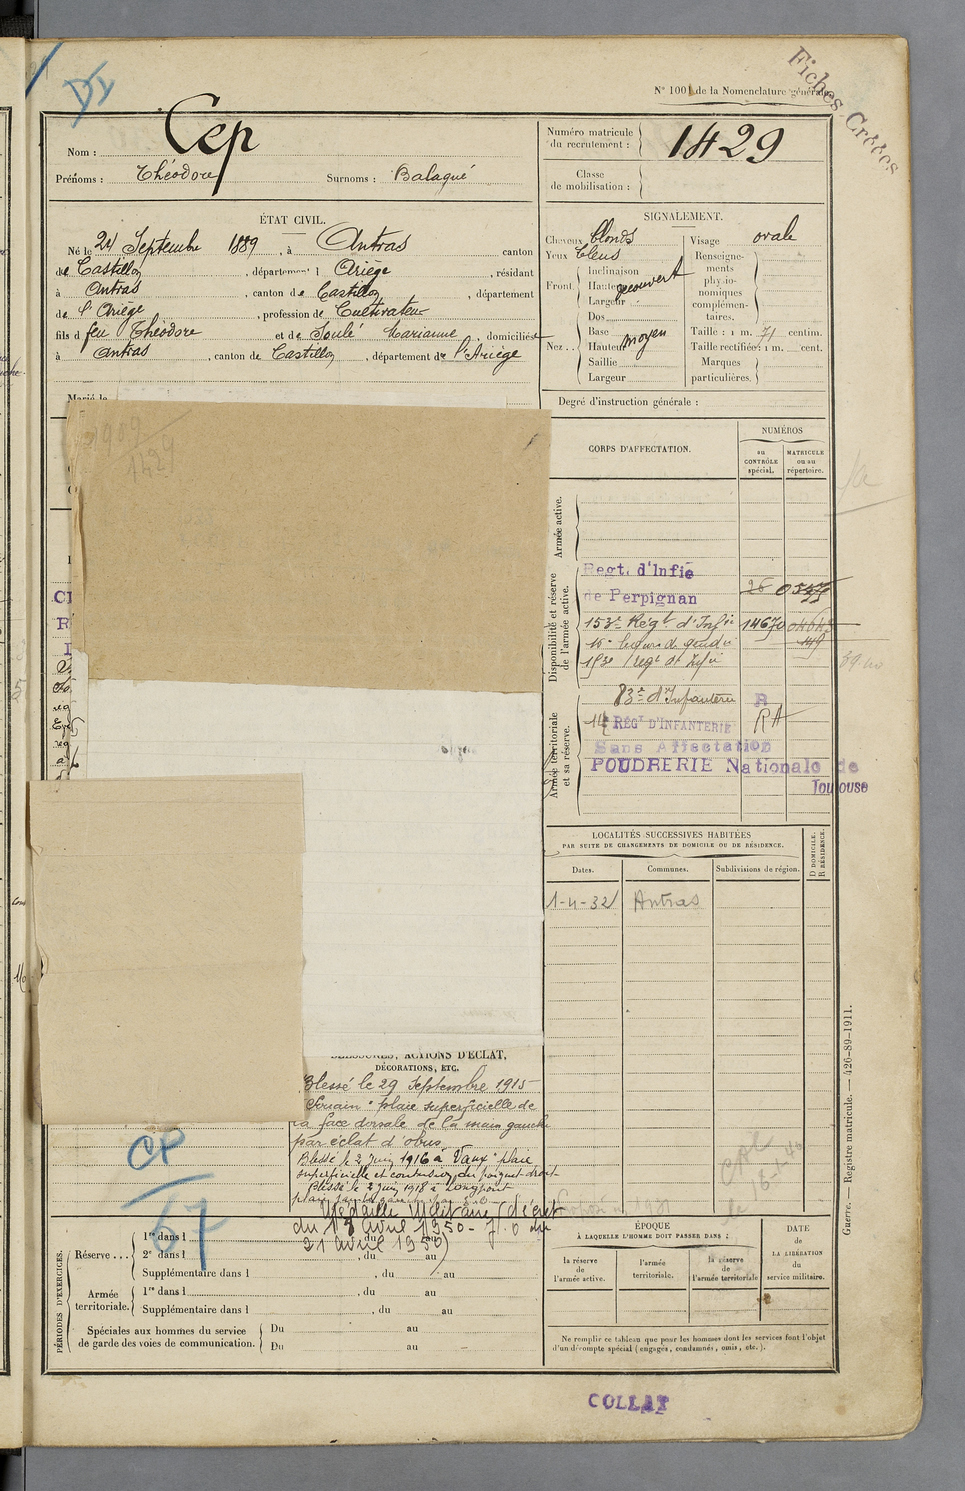 Fiches Créées
N° 1001 de la Nomenclature générale.
Nom : Cep
Prénoms : Théodore Surnoms : Balagué
Numéro matricule du recrutement : 1429
Classe de mobilisation :
ÉTAT CIVIL.
Né le 24 Septembre 1889, à Antras canton
de Castillon, département d Ariège, résidant
à Antras, canton de Castillon, département
de l'Ariège, profession de Cultivateur
fils d feu Théodore et de Soulé Marianne, domiciliés
à Antras, canton de Castillon, département de l'Ariège
Marié le
SIGNALEMENT.
Cheveux blonds
Yeux bleus
Front
Inclinaison
Hauteur
Largeur
Nez
Dos
Base
Hauteur moyen
Saillie
Largeur
Visage ovale
Renseignements physionomiques complémentaires.
Taille : 1 m. 71 centim.
Taille rectifiée : 1 m. cent.
Marques particulières.
Degré d'instruction générale :
1909
1429
CORPS D'AFFECTATION.
NUMÉROS
au CONTRÔLE spécial.
MATRICULE ou au répertoire.
Armée active.
Disponibilité et réserve de l'armée active.
Regt. d'Infie
de Perpignan
153e Régt d'Infie 14670
153e regt d'Infie
Armée territoriale et sa réserve.
83e d'Infanterie R
14e RÉGt D'INFANTERIE RA
Sans Affectation
POUDRERIE Nationale de
Toulouse
LOCALITÉS SUCCESSIVES HABITÉES
PAR SUITE DE CHANGEMENTS DE DOMICILE OU DE RÉSIDENCE.
Dates. Communes. Subdivisions de région.
D DOMICILE.
R RÉSIDENCE.
1-4-32 Antras
BLESSURES, ACTIONS D'ÉCLAT,
DÉCORATIONS, ETC.
Blessé le 29 Septembre 1915
Souain "plaie superficielle de
la face dorsale de la main gauche
par éclat d'obus
Blessé le 2 Juin 1916 à Vaux "plaie
superficielle et contusion du poignet droit
Blessé le 2 Juin 1918 à Longpont
Médaille Militaire (décret
du 18 avril 1950 - J.O du
21 avril 1950)
CP
67
PÉRIODES D'EXERCICES.
Réserve ...
1re dans l , du au
2e dans l , du au
Supplémentaire dans l , du au
Armée territoriale.
1re dans l , du au
Supplémentaire dans l , du au
Spéciales aux hommes du service
de garde des voies de communication.
Du au
Du au
ÉPOQUE
À LAQUELLE L'HOMME DOIT PASSER DANS :
la réserve de l'armée active.
l'armée territoriale.
la réserve de l'armée territoriale
DATE de LA LIBÉRATION du service militaire.
Ne remplir ce tableau que pour les hommes dont les services font l'objet
d'un décompte spécial (engagés, condamnés, omis, etc.).
Guerre. — Registre matricule. — 426-89-1911.
COLLAT